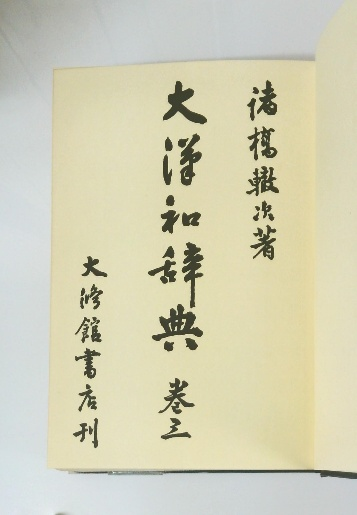 諸橋轍次著
大漢和辞典 巻三
大修館書店刊